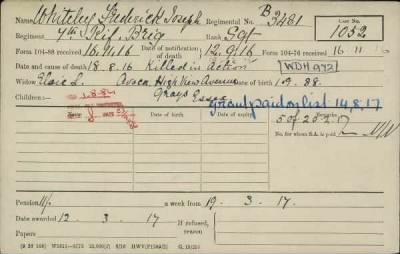 Name Whiteley Frederick Joseph Regimental No. B/3481 Case No. 1052
Regiment 7th Rif. Brig Rank Sgt
Form 104-88 received 16.9.16 Date of notification of death 12.9.16 Form 104-76 received 16 11 16
Date and cause of death 18.8.16 Killed in Action WDH 972
Widow Elsie L. Avoca, High View Avenue Date of birth 1.9.88.
Children:— Grays Essex gratuity paid on list 14.8.17
Name Date of birth Date of expiry Remarks
1.8.84
No. for whom S.A. is paid
5 of 20.2.17
Pension 11/- a week from 19. 3. 17
Date awarded 12. 3. 17 If refused, reason
Papers